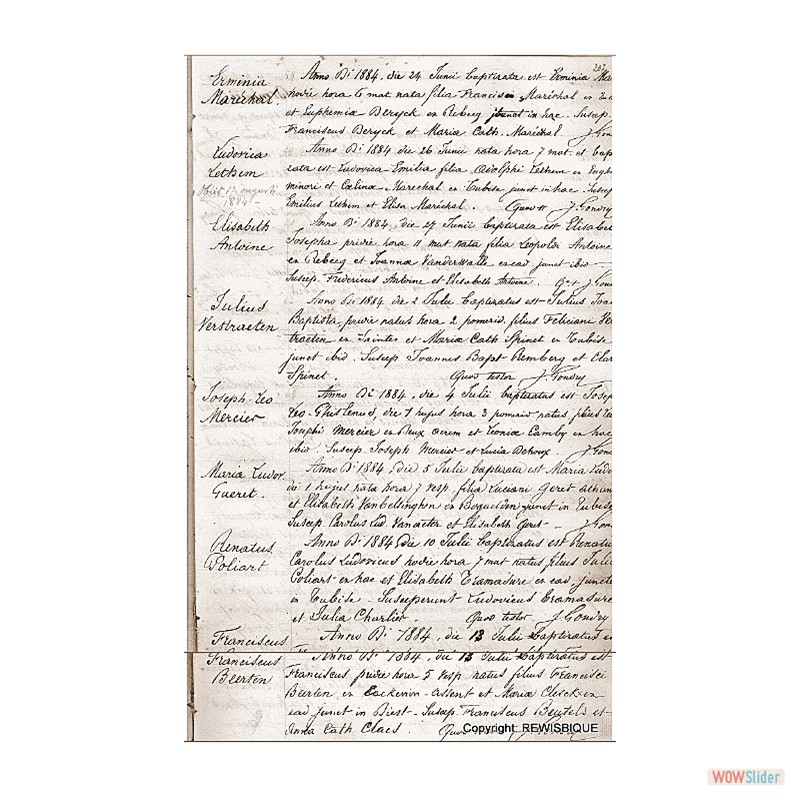 Erminia
Maréchal.
Anno Di 1884, die 24 Junii baptizata est Erminia Ma
hodie hora 6 mat. nata filia Francisci Maréchal ex
et Euphemia Beryck ex Rebecq junct in hac. Suscep
Franciscus Beryck et Maria Cath. Maréchal. J Gon
Ludovica
Lethem
Obiit 17 augusti
1884
Anno Di 1884 die 26 Junii nata hora 7 mat. et bap
zata est Ludovica Emilia filia Adolphi Lethem ex Engh
minori et Cœlinæ Marechal ex Tubise junct in hac. Suscep
Emilius Lethem et Elisa Maréchal. Quod tt J Gondry
Elisabeth
Antoine
Anno Di 1884, die 27 Junii baptizata est Elisabet
Josepha pridie hora 11 mat nata filia Leopoldi Antoine
ex Rebecq et Joanna Vanderwalle ex ead junct ibid
Suscep. Fridericus Antoine et Elisabeth Antoine. Qd tt J Gond
Julius
Verstraeten
Anno Di 1884 die 2 Julii baptizatus est Julius Joan
Baptista, pridie natus hora 2 pomerid. filius Feliciani Ver
traeten ex Saintes et Maria Cath Spinet ex Tubise
junct ibid. Suscep Joannes Bapt Remberg et Cla
Spinet. Quod testor J Gondry
Joseph Leo
Mercier
Anno Di 1884, die 4 Julii baptizatus est Josep
Leo Ghislenus, die 1 hujus hora 3 pomerid natus, filius
Josephi Mercier ex Deux Acren et Leonia Camby ex hac
ibid. Suscep. Joseph Mercier et Lucia Dehoux. J Gon
Maria Ludov.
Gueret.
Anno Di 1884, die 5 Julii baptizata est Maria Ludo
die 1 hujus nata hora 7 vesp. filia Luciani Geret
et Elisabeth Van Bellinghen ex Bogaerden junct in Tubise
Suscep. Carolus Lud. Vanacter et Elisabeth Geret J Gon
Renatus
Poliart
Anno Di 1884, die 10 Julii baptizatus est Renatus
Carolus Ludovicus hodie hora 7 mat natus filius Julii
Poliart ex hac et Elisabeth Tramasure ex ead, junct
in Tubise. Susceperunt Ludovicus Tramasure
et Julia Charlier. Quod testor J Gondry
Franciscus
Anno Di 1884, die 13 Julii baptizatus es
Franciscus
Beerten
Anno Di 1884, die 13 Julii baptizatus est
Franciscus, pridie hora 5 vesp. natus filius Francisci
Beerten, ex Assent et Maria Clerckx ex
ead junct in Diest. Suscep. Franciscus Beutels et
Anna Cath Claes. Quod
Copyright: REWISBIQUE
WOWSlider